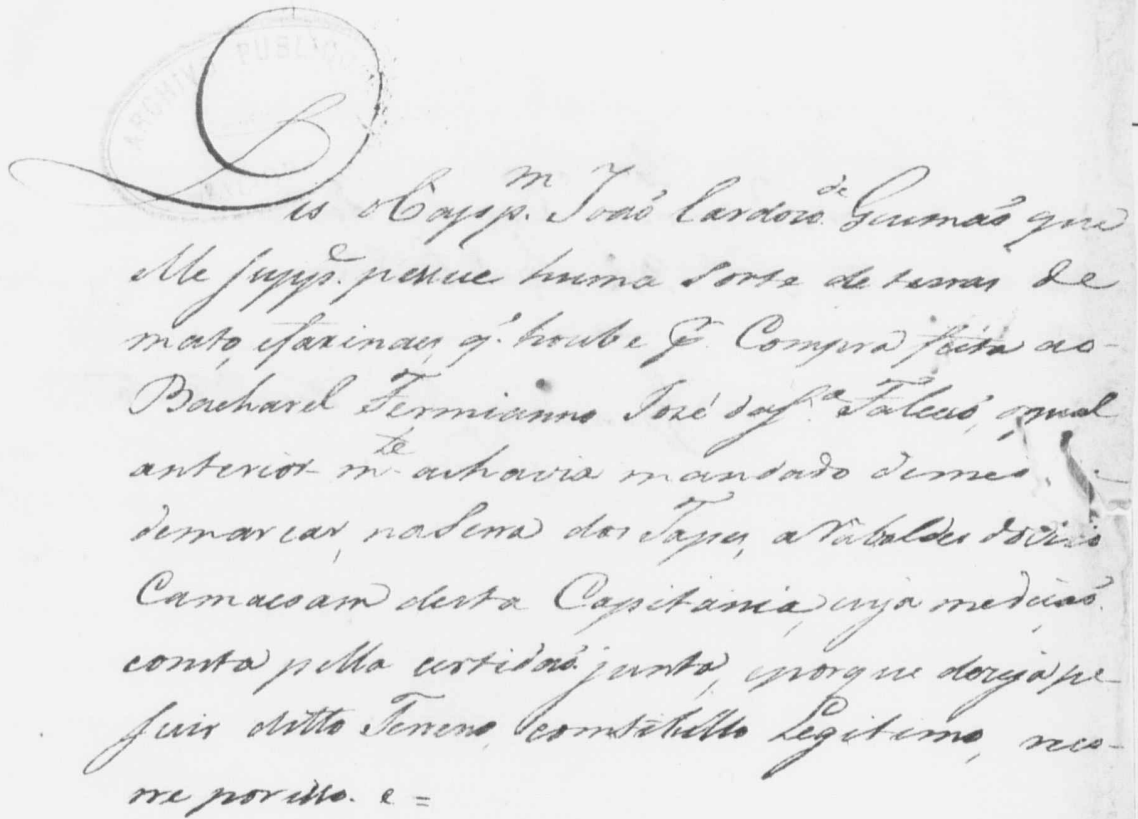 ARCHIVO PUBLICO
Dis o Capp.m João Cardozo de Gusmaó que
elle supp.e pessue huma sorte de terras de
mato, e faxinaes, q.' houbê p.r Compra feita ao
Bacharel Fermianno José da S.a Falcaó, o qual
anterior m.te a havia mandado
demarcar, na Serra dos Tapes,
Camacoam desta Capitania, cuja mediçaó
consta pella certidaó junta, e porque dezeja pe-
suir ditto Terreno, com tittullo Legitimo, reco-
rre por isso. e =